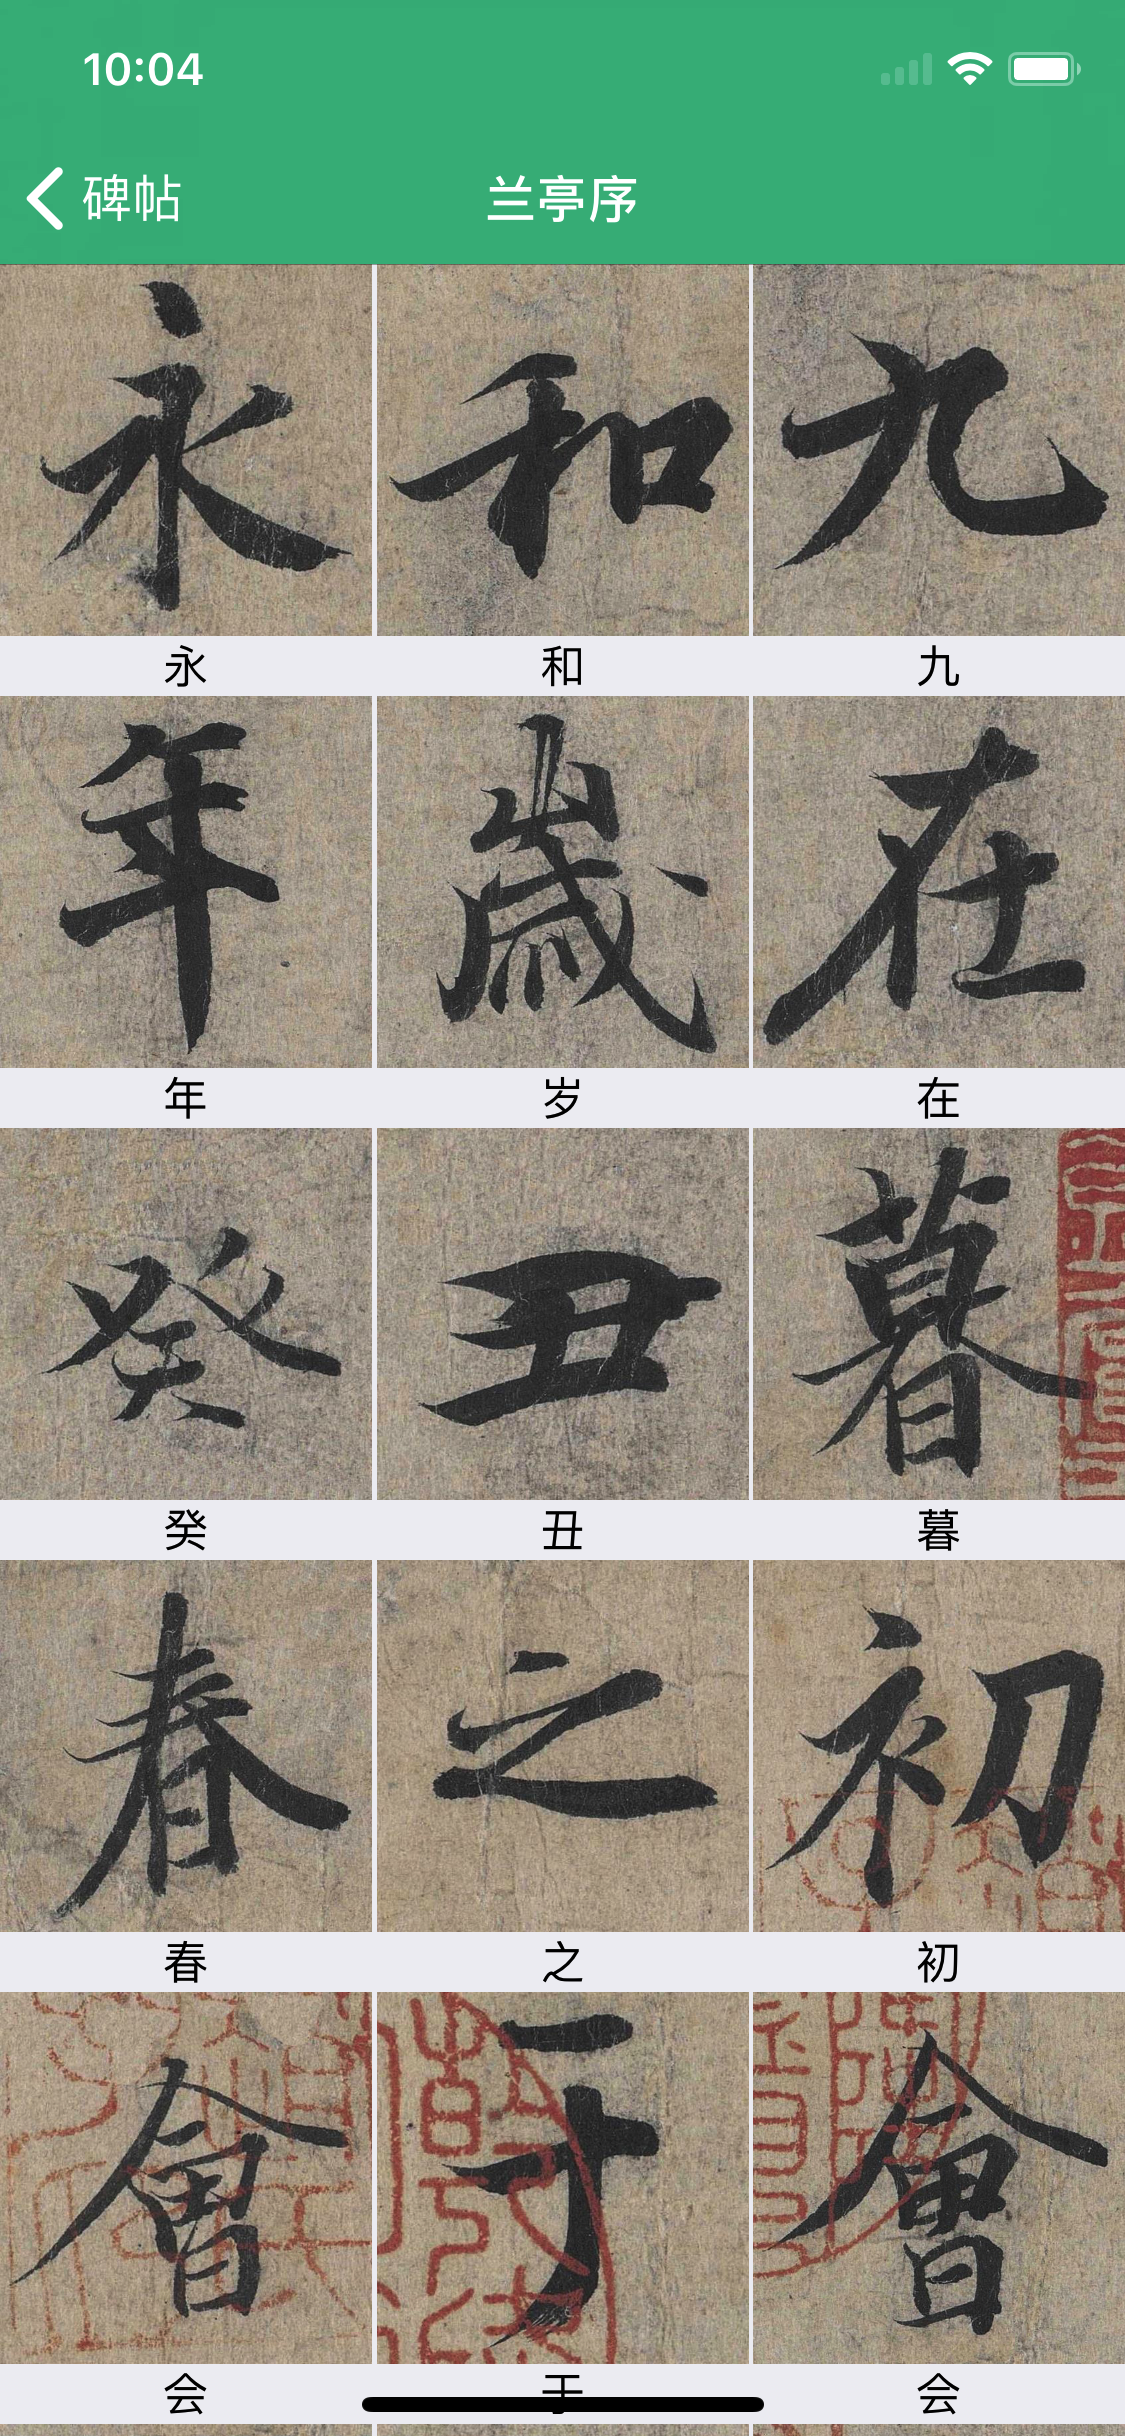 10:04
碑帖
兰亭序
永 和 九
永 和 九
年 歳 在
年 岁 在
癸 丑 暮
癸 丑 暮
春 之 初
春 之 初
會 于 會
会 于 会